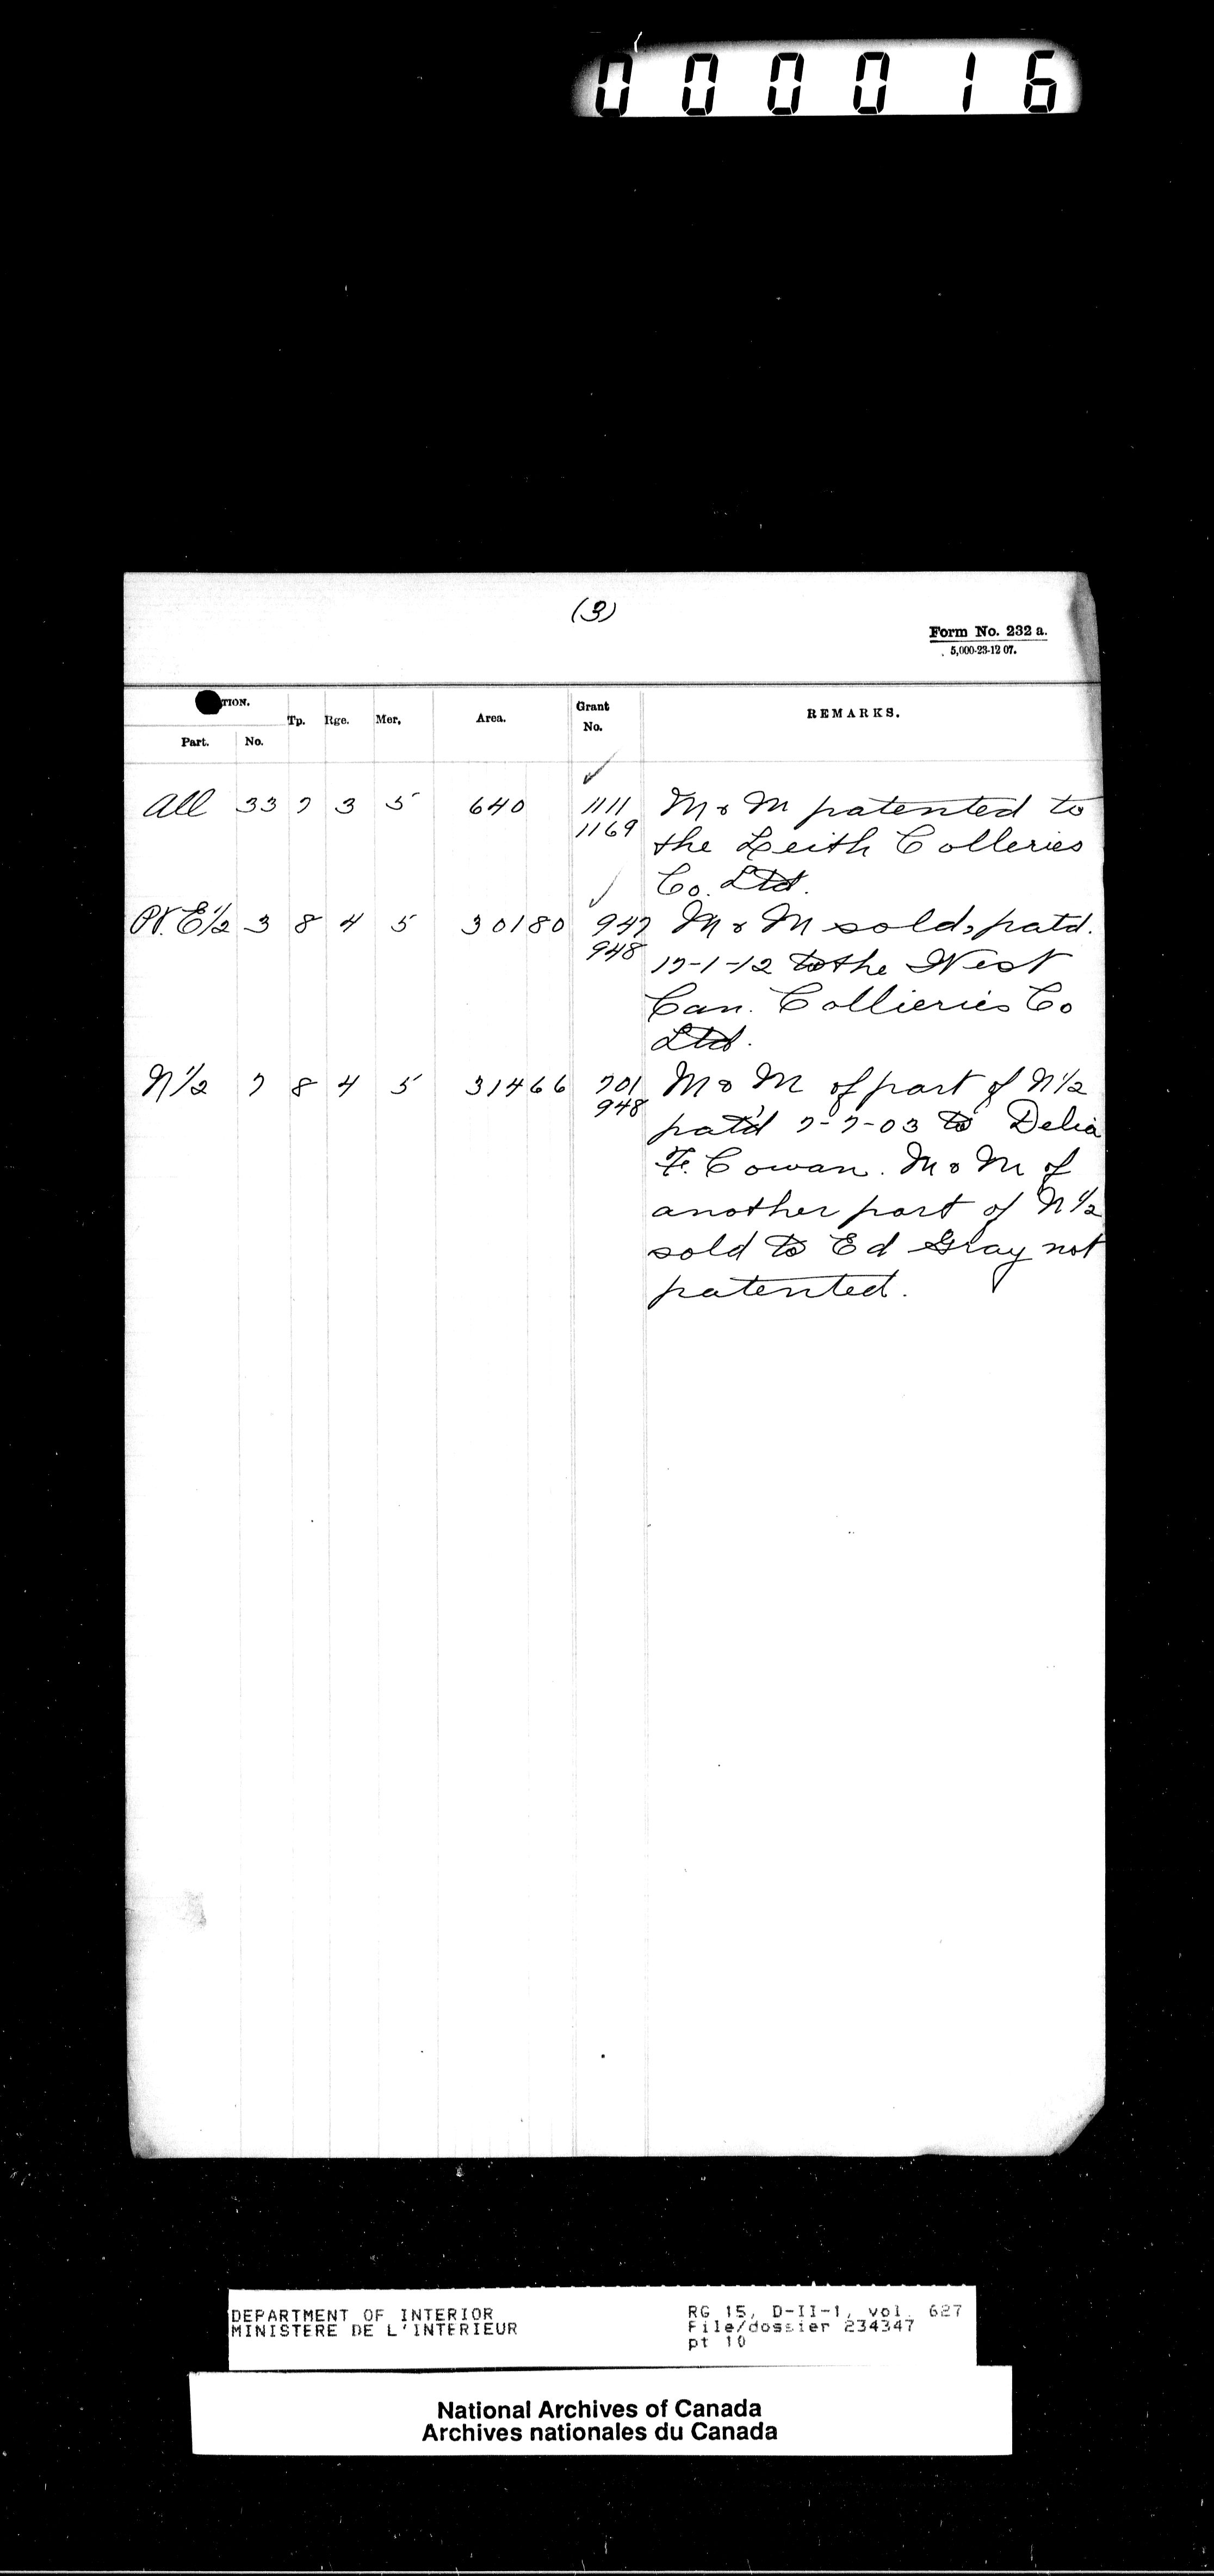 000016
(3)
Form No. 232 a.
5,000-23-12 07.
TION.
Part. No. Tp. Rge. Mer. Area. Grant No. REMARKS.
All 33 7 3 5 640 1111 M & M patented to
1169 the Leith Colleries
Co. Ltd.
Pt. E 1/2 3 8 4 5 30180 947 M & M sold, patd.
948 17-1-12 to the West
Can. Collieries Co
Ltd.
N 1/2 7 8 4 5 31466 701 M & M of part of N 1/2
948 pat'd 7-7-03 to Delia
F. Cowan. M & M of
another part of N 1/2
sold to Ed Gray not
patented.
DEPARTMENT OF INTERIOR RG 15, D-II-1, vol. 627
MINISTERE DE L'INTERIEUR File/dossier 234347
pt 10
National Archives of Canada
Archives nationales du Canada